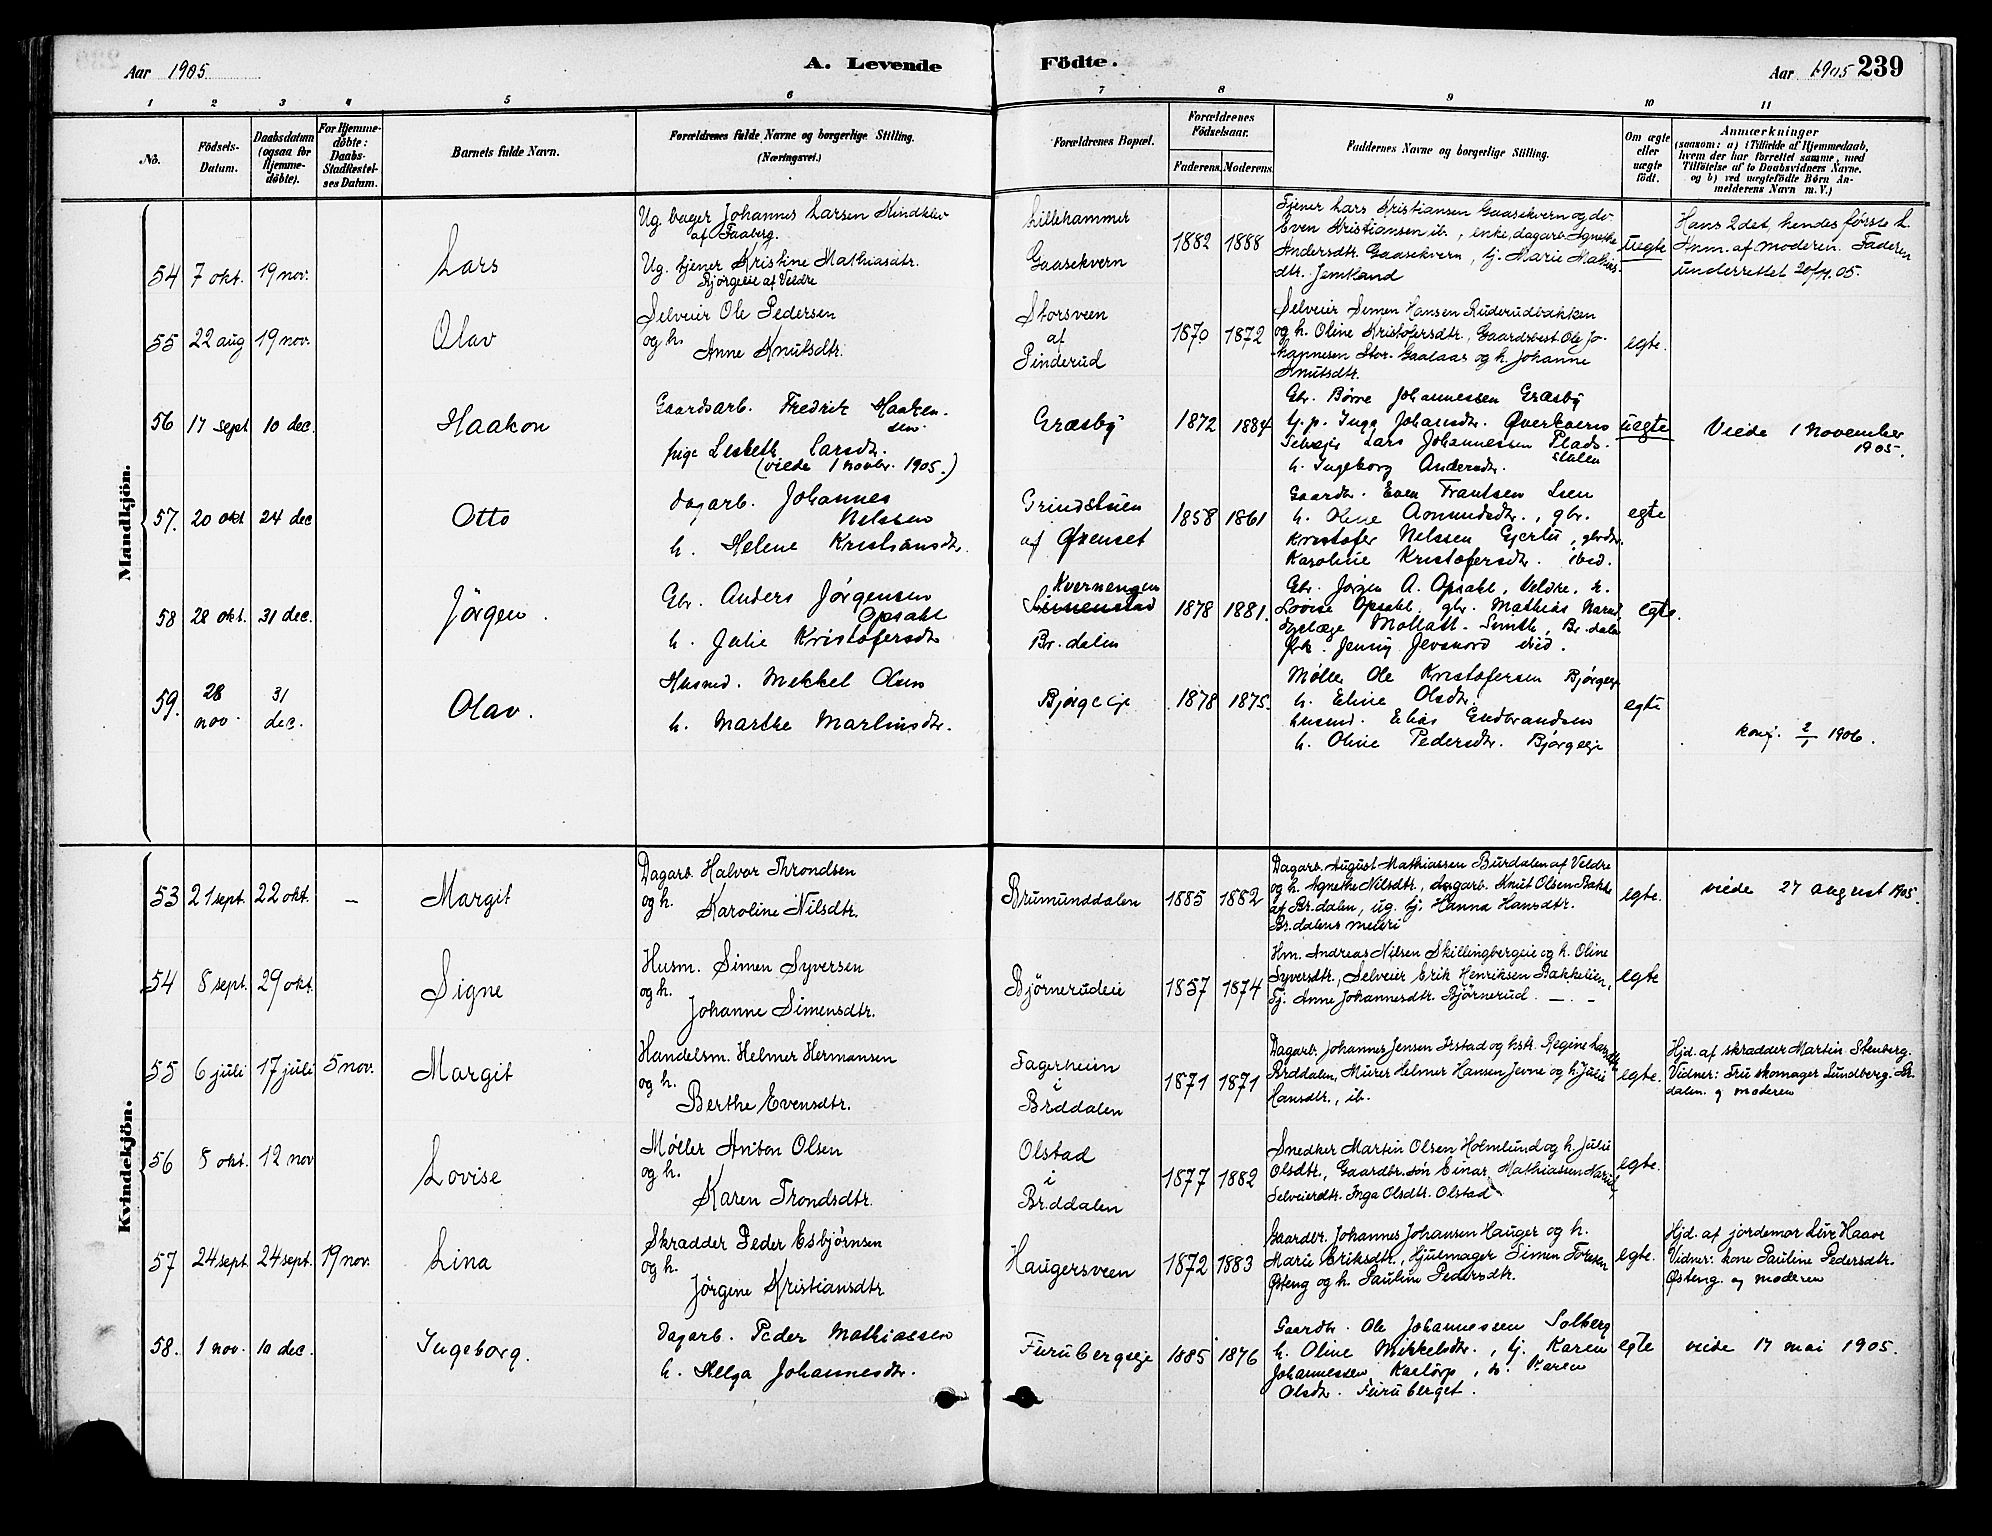 Aar 1905
A. Levende Födte.
Aar 1905 239
1 2 3 4 5 6 7 8 9 10 11
No.
Födsels-Datum.
Daabsdatum (ogsaa for Hjemme-döbte).
For Hjemme-döbte: Daabs-Stadfæstel-ses Datum.
Barnets fulde Navn.
Forældrenes fulde Navne og borgerlige Stilling.
(Næringsvei.)
Forældrenes Bopæl.
Forældrenes Födselsaar.
Faderens. Moderens.
Faddernes Navne og borgerlige Stilling.
Om ægte eller uægte födt.
Anmærkninger
(saasom: a) i Tilfælde af Hjemmedaab,
hvem der har forrettet samme, med
Tilföielse af to Daabsvidners Navne.
og b) ved uægtefödte Börn An-
melderens Navn m. V.)
Mandkjön.
54 7 okt. 19 nov.
Lars
Ug. bager Johannes Larsen Kindklev
af Faaberg.
Ug. tjener Kristine Mathiasdtr.
Bjørgeeie af Veldre
Lillehammer
Gaasekvern
1882 1888
Tjener Lars Kristiansen Gaasekvern og do
Even Kristiansen ib., enke, dagarb. Agnethe
Andersdtr. Gaasekvern, tj. Marie Mathis-
dtr. Jemtland
uegte
Hans 2det, hendes første L.
Anm. af moderen. Faderen
underrettet 20/11 05.
55 22 aug 19 nov.
Olav
Selveier Ole Pedersen
og h.
Anne Knutsdtr.
Storsveen
af
Pinderud
1870 1872
Selveier Simen Hansen Ruderudbakken
og h. Oline Kristofersdtr., Gaardbest. Ole Jo-
hannesen Stor-Gaalaas og h. Johanne
Knutsdtr.
egte.
56 17 sept 10 dec.
Haakon
Gaardsarb. Fredrik Haaken-
sen.
pige Lisbeth Larsdtr.
(viede 1 novbr. 1905.)
Græsby
1872 1884
Gbr. Børre Johannessen Græsby
tj.p. Inga Johansdtr. Øverkvern
Selvejer Lars Johannessen Plads-
stulen
h. Ingeborg Andersdtr.
uegte
Viede 1 November
1905.
57. 20 okt 24 dec
Otto
Dagarb. Johannes
Nilssen
h. Helene Kristiansdtr.
Grindstuen
af Øvenset
1858 1861
Gaardbr. Even Frantsen Lien
h. Oline Aamundsdtr., gbr.
Kristofer Nilssen Gjerlu, gbrdtr.
Karoline Kristofersdtr. ibid.
egte
58 28 okt. 31 dec.
Jörgen.
Gbr. Anders Jørgensen
Opsahl
h. Julie Kristofersdtr.
Kvernengen
Br. dalen
1878 1881.
Gbr. Jørgen A. Opsahl, Veldre, h.
Lovise Opsahl, gbr. Mathias Narud
dyrlæge Smith, Br. dalen
frk. Jenny ibid.
egte.
59. 28 nov. 31 dec.
Olav.
Husmd. Mikkel Olsen
h. Marthe Martinsdtr.
Bjørgeeje
1878 1875.
Møller Ole Kristofersen Bjørgeeje
h. Eline Olsdtr.
husmd. Elias Gudbrandsen
h. Oline Pedersdtr. Bjørgeeje
egte
konf. 2/1 1906.
Kvindekjön.
53 21 sept. 22 okt. –
Margit
Dagarb. Halvor Throndsen
og h.
Karoline Nilsdtr.
Brumunddalen
1885 1882
Dagarb. August Mathiassen Burdalen af Veldre
og h. Agnethe Nilsdtr., dagarb. Knut Olsen Bakke
af Br.dalen, ug. tj. Hanna Hansdtr.
Br.dalens meieri
egte.
viede 27 august 1905.
54 8 sept. 29 okt.
Signe
Husm. Simen Syversen
og h.
Johanne Simensdtr.
Björnerudeie
1857 1874
Hm. Andreas Nilsen Skillingbergeie og h. Oline
Syversdtr., Selveier Erik Henriksen Bakkelien,
Tj. Anne Johannesdtr. Björnerud. – . –
egte
55 6 juli 17 juli 5 nov.
Margit
Handelsm. Helmer Hermansen
og h.
Berthe Evensdtr.
Fagerheim
i
Br.ddalen
1871 1871
Dagarb. Johannes Jensen Ilstad og hstr. Regine Larsdtr.
Br.ddalen, Murer Helmer Hansen Jevne og h. Julie
Hansdtr., ib.
egte.
Hjd. af skradder Martin Stenberg.
Vidner: Fru skomager Lundberg. Br.
dalen. og moderen
56 8 okt. 12 nov
Lovise
Møller Anton Olsen
og h.
Karen Trondsdtr.
Olstad
i
Br.ddalen
1877 1882
Snedker Martin Olsen Holmlund og h. Julie
Olsdtr., Gaardbr. søn Einar Mathiassen Narud,
Selveierdtr. Inga Olsdtr. Olstad
egte.
57 24 sept 24 sept. 19 nov.
Lina
Skradder Peder Esbjørnsen
og h.
Jörgine Kristiansdtr.
Haugersveen
1872 1883
Gaardbr. Johannes Johansen Hauger og h.
Marie Eriksdtr., Hjulmager Simen Toresen
Østeng og h. Pauline Pedersdtr.
egte.
Hjd. af jordemor Live Haave
Vidner: kone Pauline Pedersdtr.
Østeng. og moderen
58. 1 nov. 10 dec.
Ingeborg.
Dagarb. Peder Mathiassen
h. Helga Johannesdtr.
Furubergseje
1885 1876
Gaardbr. Ole Johannessen Solberg
h. Oline Mikkelsdtr., tj. Karen
Johannessen h. Karen
Olsdtr. Furuberget.
egte
viede 17 mai 1905.